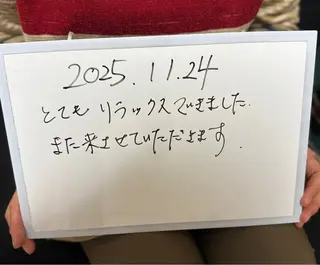 2025.11.24
とても リラックスできました.
また来させていただきます.